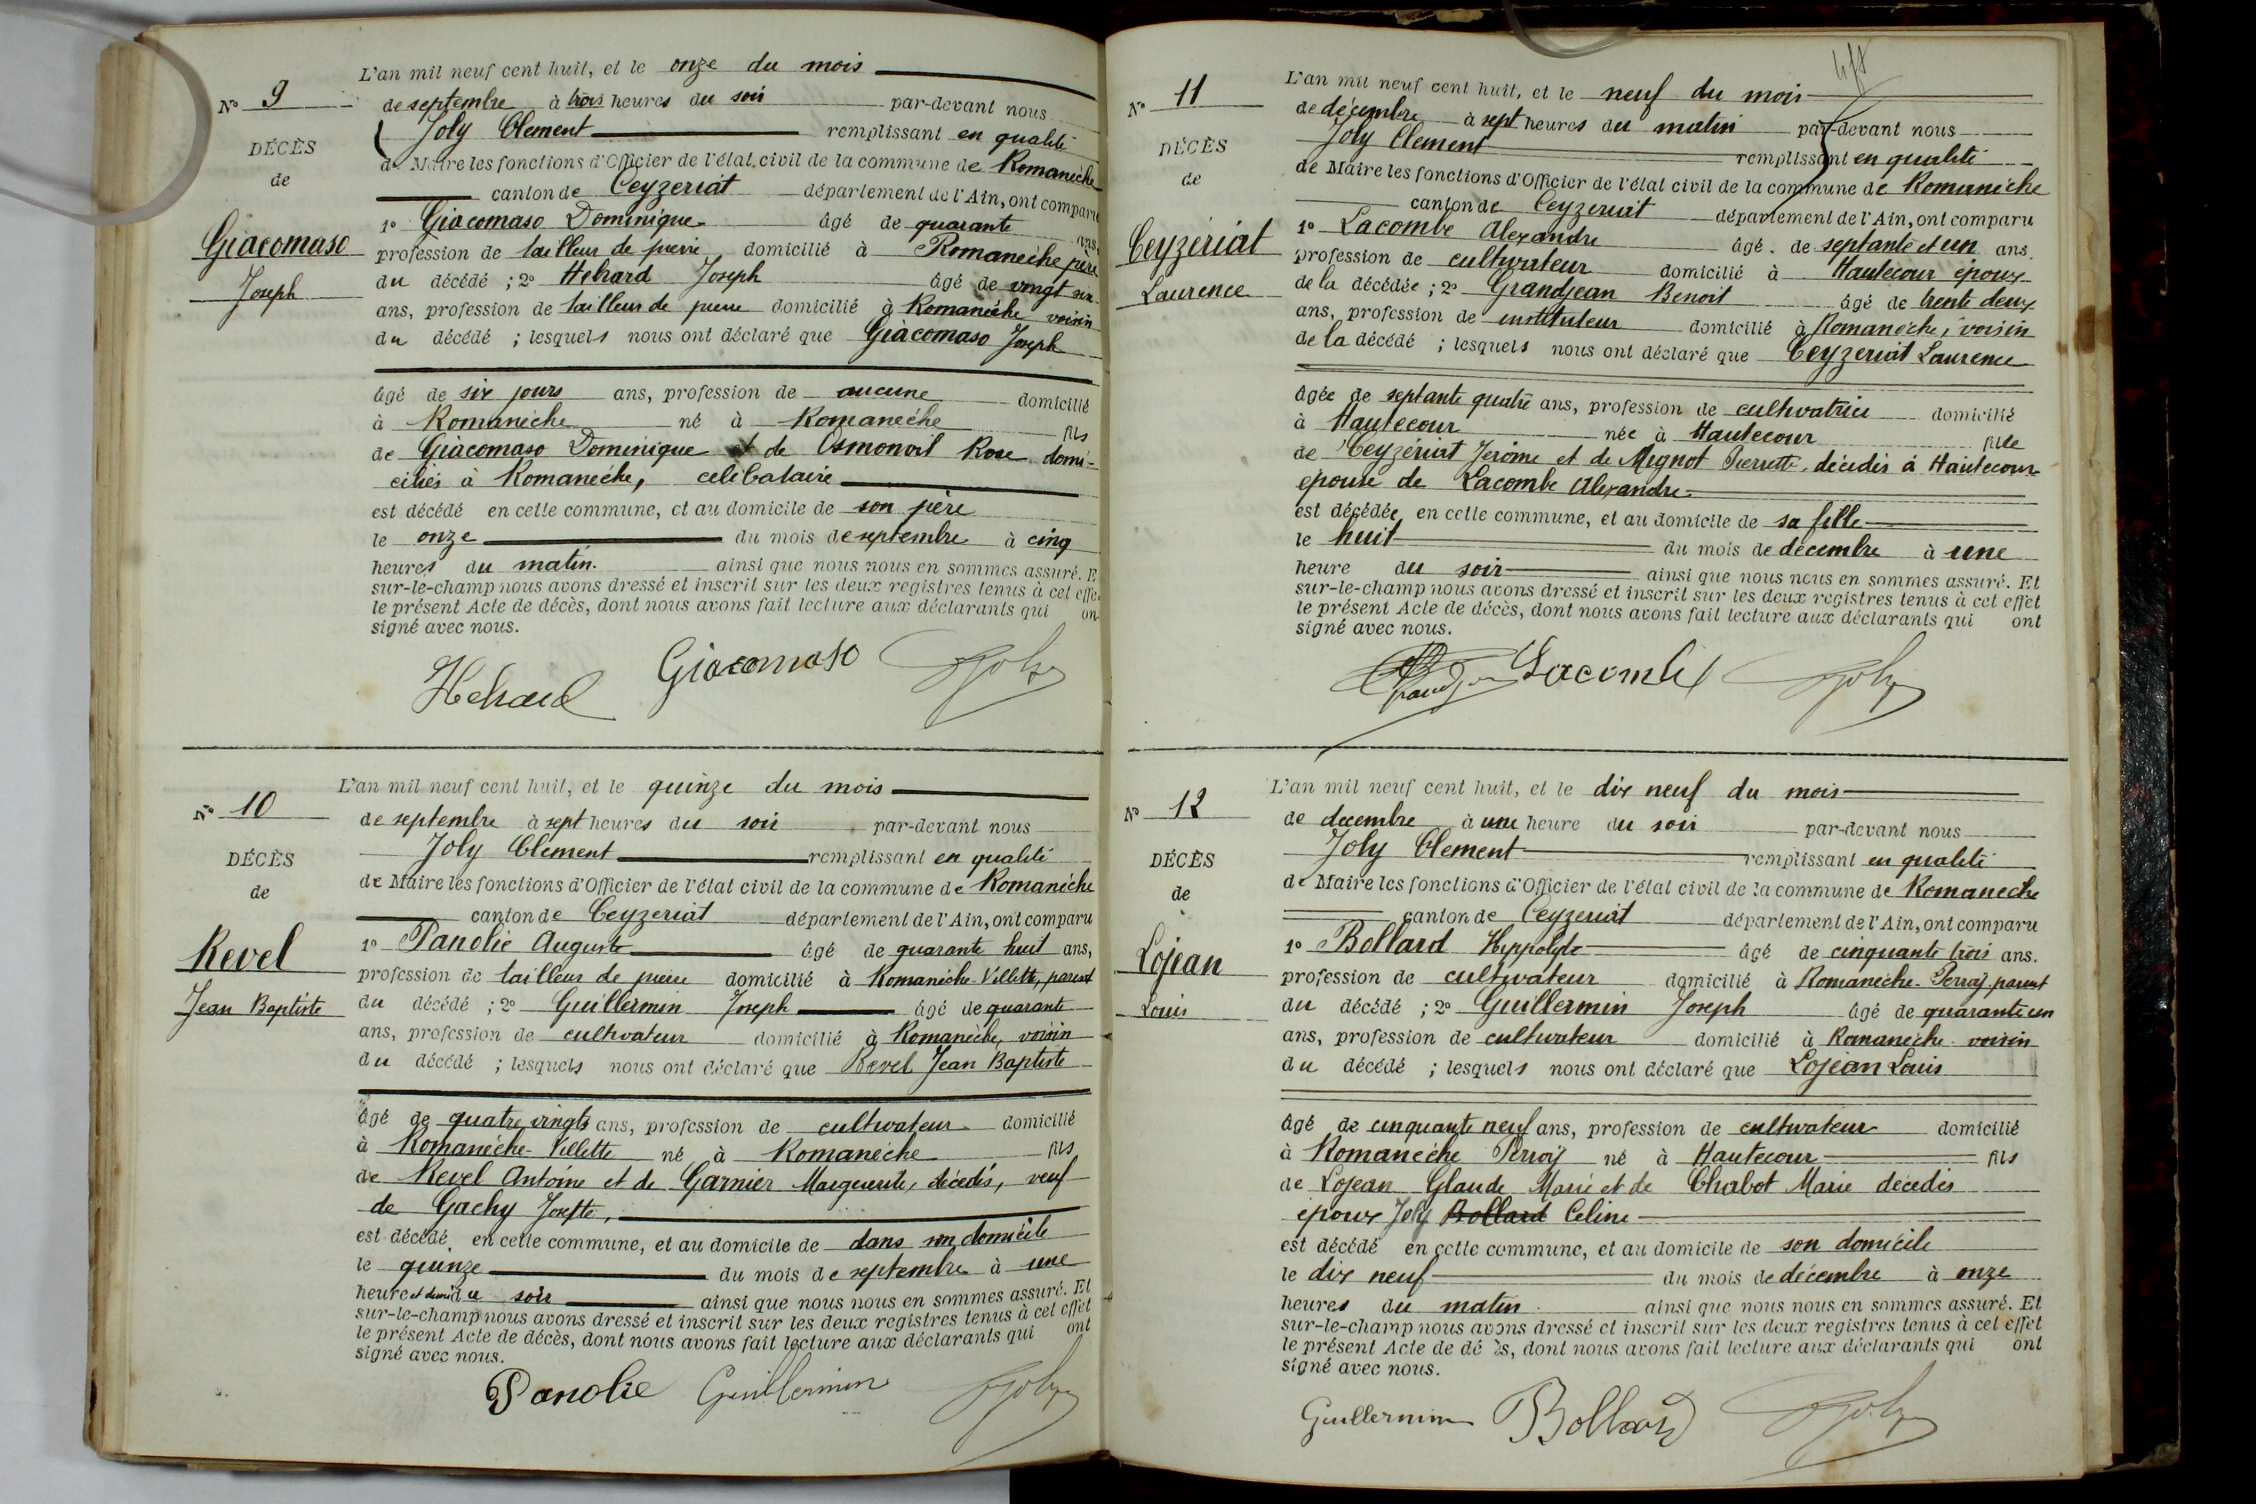 N° 9
DÉCÈS
de
Giacomaso
Joseph
L'an mil neuf cent huit, et le onze du mois
de septembre à trois heures du soir par-devant nous
Joly Clement remplissant en qualité
de Maire les fonctions d'Officier de l'état civil de la commune de Romanèche
canton de Ceyzeriat département de l'Ain, ont comparu
1° Giacomaso Dominique âgé de quarante ans,
profession de tailleur de pierre domicilié à Romanèche père
du décédé ; 2° Hehard Joseph âgé de vingt six
ans, profession de tailleur de pierre domicilié à Romanèche voisin
du décédé ; lesquels nous ont déclaré que Giacomaso Joseph
âgé de six jours ans, profession de aucune domicilié
à Romanèche né à Romanèche fils
de Giacomaso Dominique et de Osmonoil Rose domi-
ciliés à Romanèche, celibataire
est décédé en cette commune, et au domicile de son père
le onze du mois de septembre à cinq
heures du matin. ainsi que nous nous en sommes assuré. E
sur-le-champ nous avons dressé et inscrit sur les deux registres tenus à cet effe
le présent Acte de décès, dont nous avons fait lecture aux déclarants qui on
signé avec nous.
Hehard Giacomaso Joly
N° 10
DÉCÈS
de
Revel
Jean Baptiste
L'an mil neuf cent huit, et le quinze du mois
de septembre à sept heures du soir par-devant nous
Joly Clement remplissant en qualité
de Maire les fonctions d'Officier de l'état civil de la commune de Romanèche
canton de Ceyzeriat département de l'Ain, ont comparu
1° Panolie Auguste âgé de quarante huit ans,
profession de tailleur de pierre domicilié à Romanèche-Villette, parent
du décédé ; 2° Guillermin Joseph âgé de quarante
ans, profession de cultivateur domicilié à Romanèche, voisin
du décédé ; lesquels nous ont déclaré que Revel Jean Baptiste
âgé de quatre vingts ans, profession de cultivateur domicilié
à Romanèche-Villette né à Romanèche fils
de Revel Antoine et de Garnier Marguerite, décédés, veuf
de Gachy Josephte,
est décédé en cette commune, et au domicile de dans son domicile
le quinze du mois de septembre à une
heure et demie du soir ainsi que nous nous en sommes assuré. Et
sur-le-champ nous avons dressé et inscrit sur les deux registres tenus à cet effet
le présent Acte de décès, dont nous avons fait lecture aux déclarants qui ont
signé avec nous.
Panolie Guillermin Joly
N° 11
DÉCÈS
de
Ceyzériat
Laurence
L'an mil neuf cent huit, et le neuf du mois
de décembre à sept heures du matin par-devant nous
Joly Clement remplissant en qualité
de Maire les fonctions d'Officier de l'état civil de la commune de Romanèche
canton de Ceyzeriat département de l'Ain, ont comparu
1° Lacombe Alexandre âgé de septante et un ans.
profession de cultivateur domicilié à Hautecour époux
de la décédée ; 2° Grandjean Benoit âgé de trente deux
ans, profession de instituteur domicilié à Romanèche, voisin
de la décédé ; lesquels nous ont déclaré que Ceyzeriat Laurence
âgée de septante quatre ans, profession de cultivatrice domicilié
à Hautecour née à Hautecour fille
de Ceyzériat Jerôme et de Mignot Pierrette, décédés à Hautecour
epouse de Lacombe Alexandre.
est décédée en cette commune, et au domicile de sa fille
le huit du mois de décembre à une
heure du soir ainsi que nous nous en sommes assuré. Et
sur-le-champ nous avons dressé et inscrit sur les deux registres tenus à cet effet
le présent Acte de décès, dont nous avons fait lecture aux déclarants qui ont
signé avec nous.
Grandjean Lacombe Joly
N° 12
DÉCÈS
de
Lojean
Louis
L'an mil neuf cent huit, et le dix neuf du mois
de decembre à une heure du soir par-devant nous
Joly Clement remplissant en qualité
de Maire les fonctions d'Officier de l'état civil de la commune de Romanèche
canton de Ceyzeriat département de l'Ain, ont comparu
1° Bollard Hyppolyte âgé de cinquante trois ans.
profession de cultivateur domicilié à Romanèche-Perroy parent
du décédé ; 2° Guillermin Joseph âgé de quarante un
ans, profession de cultivateur domicilié à Romanèche voisin
du décédé ; lesquels nous ont déclaré que Lojean Louis
âgé de cinquante neuf ans, profession de cultivateur domicilié
à Romanèche Perroy né à Hautecour fils
de Lojean Glaude Marie et de Chabot Marie décédés
époux Joly Bollard Celine
est décédé en cette commune, et au domicile de son domicile
le dix neuf du mois de décembre à onze
heures du matin ainsi que nous nous en sommes assuré. Et
sur-le-champ nous avons dressé et inscrit sur les deux registres tenus à cet effet
le présent Acte de dé ès, dont nous avons fait lecture aux déclarants qui ont
signé avec nous.
Guillermin Bollard Joly